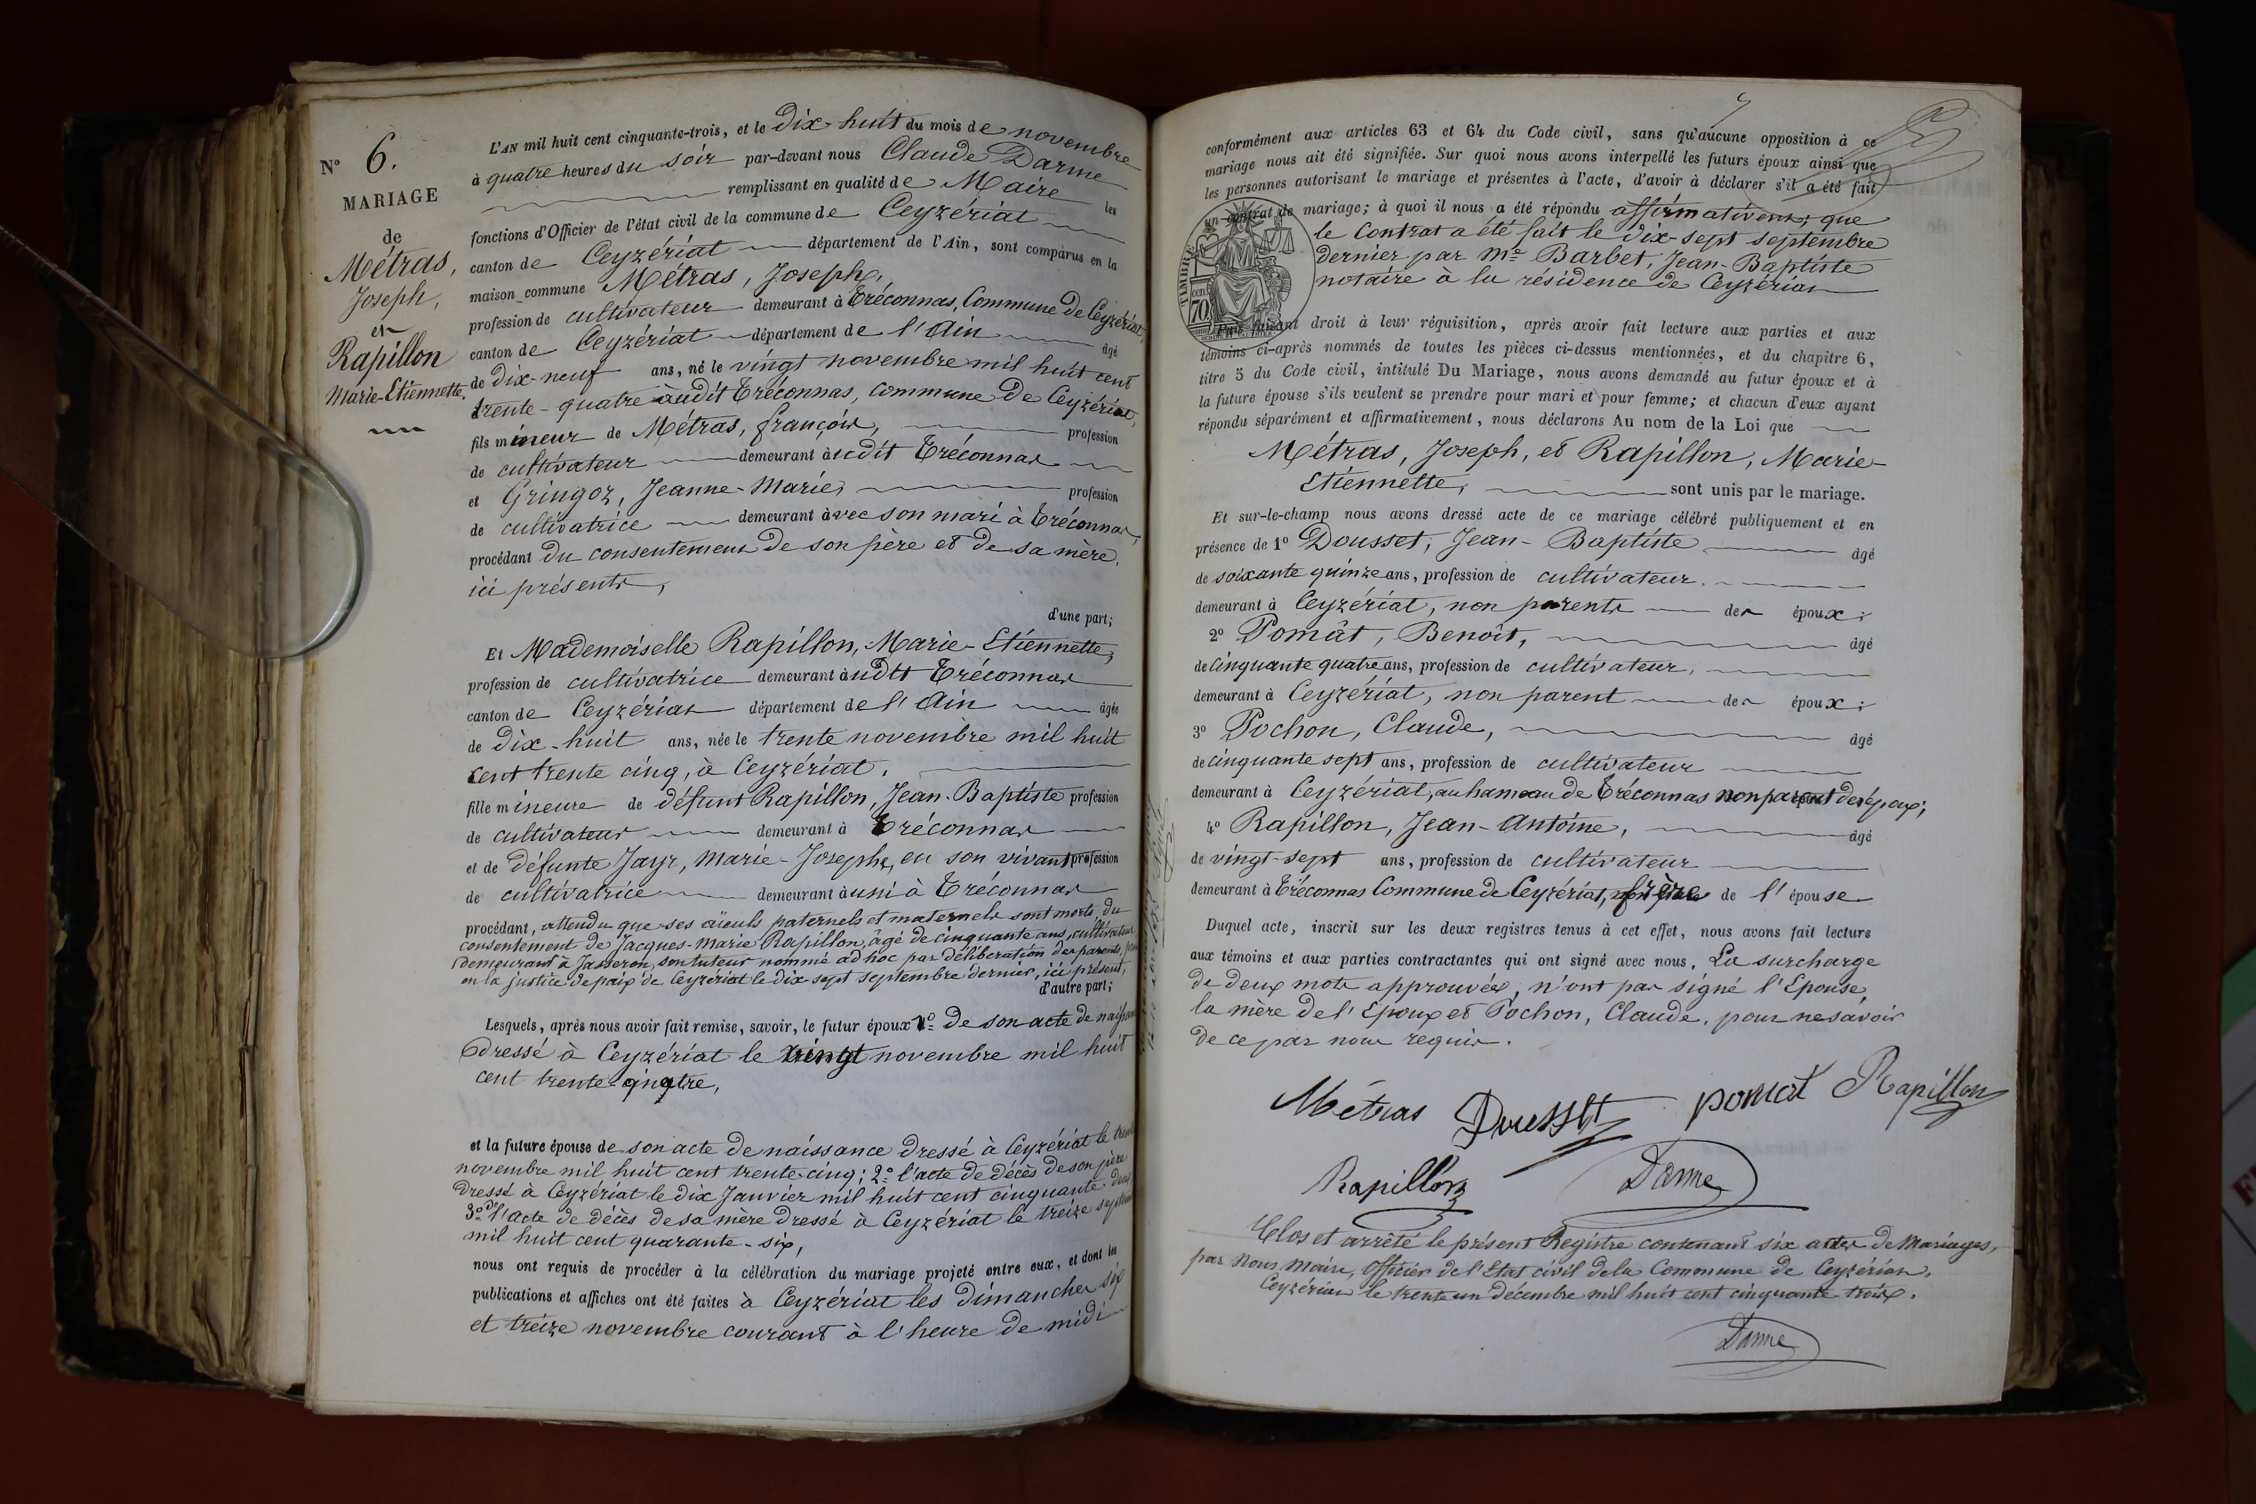 N° 6.
MARIAGE
de
Métras,
Joseph,
et
Rapillon
Marie-Etiennette.
L'AN mil huit cent cinquante-trois, et le dix-huit du mois de novembre
à quatre heures du soir par-devant nous Claude Darme
remplissant en qualité de Maire les
fonctions d'Officier de l'état civil de la commune de Ceyzériat
canton de Ceyzériat département de l'Ain, sont comparus en la
maison commune Métras, Joseph,
profession de cultivateur demeurant à Tréconnas, Commune de Ceyzériat,
canton de Ceyzériat département de l'Ain âgé
de dix-neuf ans, né le vingt novembre mil huit cent
trente-quatre audit Tréconnas, commune de Ceyzériat,
fils mineur de Métras, françois, profession
de cultivateur demeurant audit Tréconnas
et Gringoz, Jeanne-Marie, profession
de cultivatrice demeurant avec son mari à Tréconnas,
procédant du consentement de son père et de sa mère,
ici présents,
d'une part;
Et Mademoiselle Rapillon, Marie-Etiennette,
profession de cultivatrice demeurant audit Tréconnas
canton de Ceyzériat département de l'Ain âgée
de dix-huit ans, née le trente novembre mil huit
cent trente cinq, à Ceyzériat,
fille mineure de défunt Rapillon, Jean-Baptiste profession
de cultivateur demeurant à Tréconnas
et de défunte Jayr, Marie-Josephe, en son vivant profession
de cultivatrice demeurant aussi à Tréconnas
procédant, attendu que ses aïeuls paternels et maternels sont morts, du
consentement de Jacques-Marie Rapillon, âgé de cinquante ans, cultivateur
demeurant à Jasseron, son tuteur nommé ad hoc par délibération des parents,
en la justice de paix de Ceyzériat le dix-sept septembre dernier, ici présent,
d'autre part;
Lesquels, après nous avoir fait remise, savoir, le futur époux 1° de son acte de naissance
dressé à Ceyzériat le vingt novembre mil huit
cent trente-quatre,
et la future épouse de son acte de naissance dressé à Ceyzériat le trente
novembre mil huit cent trente cinq; 2° l'acte de décès de son père
dressé à Ceyzériat le dix Janvier mil huit cent cinquante
3° de l'acte de décès de sa mère dressé à Ceyzériat le treize septembre
mil huit cent quarante-six,
nous ont requis de procéder à la célébration du mariage projeté entre eux, et dont les
publications et affiches ont été faites à Ceyzériat les dimanches six
et treize novembre courant à l'heure de midi
7
conformément aux articles 63 et 64 du Code civil, sans qu'aucune opposition à ce
mariage nous ait été signifiée. Sur quoi nous avons interpellé les futurs époux ainsi que
les personnes autorisant le mariage et présentes à l'acte, d'avoir à déclarer s'il a été fait
un contrat de mariage; à quoi il nous a été répondu affirmativemt, que
le contrat a été fait le dix-sept septembre
dernier par Me Barbet, Jean-Baptiste
notaire à la résidence de Ceyzériat
TIMBRE
70
Puis faisant droit à leur réquisition, après avoir fait lecture aux parties et aux
témoins ci-après nommés de toutes les pièces ci-dessus mentionnées, et du chapitre 6,
titre 5 du Code civil, intitulé Du Mariage, nous avons demandé au futur époux et à
la future épouse s'ils veulent se prendre pour mari et pour femme; et chacun d'eux ayant
répondu séparément et affirmativement, nous déclarons Au nom de la Loi que
Métras, Joseph, et Rapillon, Marie-
Etiennette, sont unis par le mariage.
Et sur-le-champ nous avons dressé acte de ce mariage célébré publiquement et en
présence de 1° Dousset, Jean-Baptiste âgé
de soixante quinze ans, profession de cultivateur,
demeurant à Ceyzériat, non parent des époux;
2° Pomat, Benoît, âgé
de cinquante quatre ans, profession de cultivateur,
demeurant à Ceyzériat, non parent des époux;
3° Pochon, Claude, âgé
de cinquante sept ans, profession de cultivateur
demeurant à Ceyzériat, au hameau de Tréconnas non parent des époux;
4° Rapillon, Jean-Antoine, âgé
de vingt-sept ans, profession de cultivateur
demeurant à Tréconnas Commune de Ceyzériat, frère de l'épouse
Duquel acte, inscrit sur les deux registres tenus à cet effet, nous avons fait lecture
aux témoins et aux parties contractantes qui ont signé avec nous. La surcharge
de deux mots approuvée, n'ont pas signé l'Epouse,
la mère de l'Epoux et Pochon, Claude, pour ne savoir
de ce par nous requis.
Métras Dousset pomat Rapillon
Rapillon Darme
Clos et arrêté le présent Registre contenant six actes de Mariages,
par Nous Maire, Officier de l'Etat civil de la Commune de Ceyzériat.
Ceyzériat le trente un décembre mil huit cent cinquante trois.
Darme